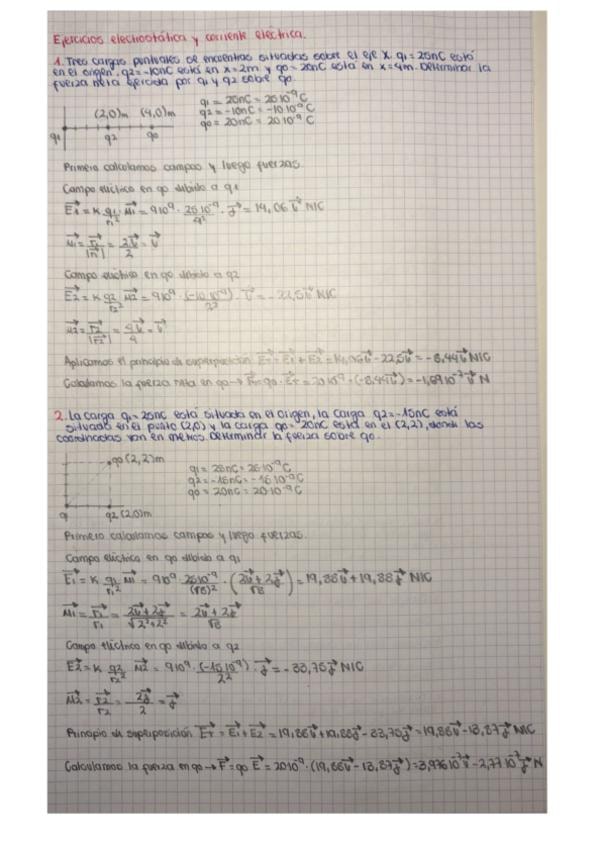 Ejercicios electrostática y corriente eléctrica.
1. Tres cargas puntuales se encuentras situadas sobre el eje x. q1 = 25nC está
en el origen, q2 = -10nC está en x = 2m y q0 = 20nC está en x = 4m. Determinar la
fuerza neta ejercida por q1 y q2 sobre q0.
q1 = 25nC = 25·10⁻⁹ C
(2,0)m (4,0)m q2 = -10nC = -10·10⁻⁹ C
q0 = 20nC = 20·10⁻⁹ C
q1 q2 q0
Primero calculamos campos y luego fuerzas.
Campo eléctrico en q0 debido a q1
E1 = K q1/r1² u1 = 9·10⁹ · 25·10⁻⁹/4² · i = 14,06 i N/C
u1 = r1/|r1| = 2i/2 = i
Campo eléctrico en q0 debido a q2
E2 = K q2/r2² u2 = 9·10⁹ · (-10·10⁻⁹)/2² · i = -22,5 i N/C
u2 = r2/|r2| = 4i/4 = i
Aplicamos el principio de superposición ET = E1 + E2 = 14,06 i - 22,5 i = -8,44 i N/C
Calculamos la fuerza neta en q0 → F = q0 · ET = 20·10⁻⁹ · (-8,44 i) = -1,69·10⁻⁷ i N
2. La carga q1 = 25nC está situada en el origen, la carga q2 = -15nC está
situada en el punto (2,0) y la carga q0 = 20nC está en el (2,2), donde las
coordenadas van en metros. Determinar la fuerza sobre q0.
q0 (2,2)m q1 = 25nC = 25·10⁻⁹ C
q2 = -15nC = -15·10⁻⁹ C
q0 = 20nC = 20·10⁻⁹ C
q1 q2 (2,0)m
Primero calculamos campos y luego fuerzas.
Campo eléctrico en q0 debido a q1
E1 = K q1/r1² u1 = 9·10⁹ · 25·10⁻⁹/(√8)² · (2i + 2j/√8) = 19,88 i + 19,88 j N/C
u1 = r1/r1 = 2i + 2j/√2² + 2² = 2i + 2j/√8
Campo eléctrico en q0 debido a q2
E2 = K q2/r2² u2 = 9·10⁹ · (-15·10⁻⁹)/2² · j = -33,75 j N/C
u2 = r2/r2 = 2j/2 = j
Principio de superposición ET = E1 + E2 = 19,88 i + 19,88 j - 33,75 j = 19,88 i - 13,87 j N/C
Calculamos la fuerza en q0 → F = q0 E = 20·10⁻⁹ · (19,88 i - 13,87 j) = 3,976·10⁻⁷ i - 2,77·10⁻⁷ j N